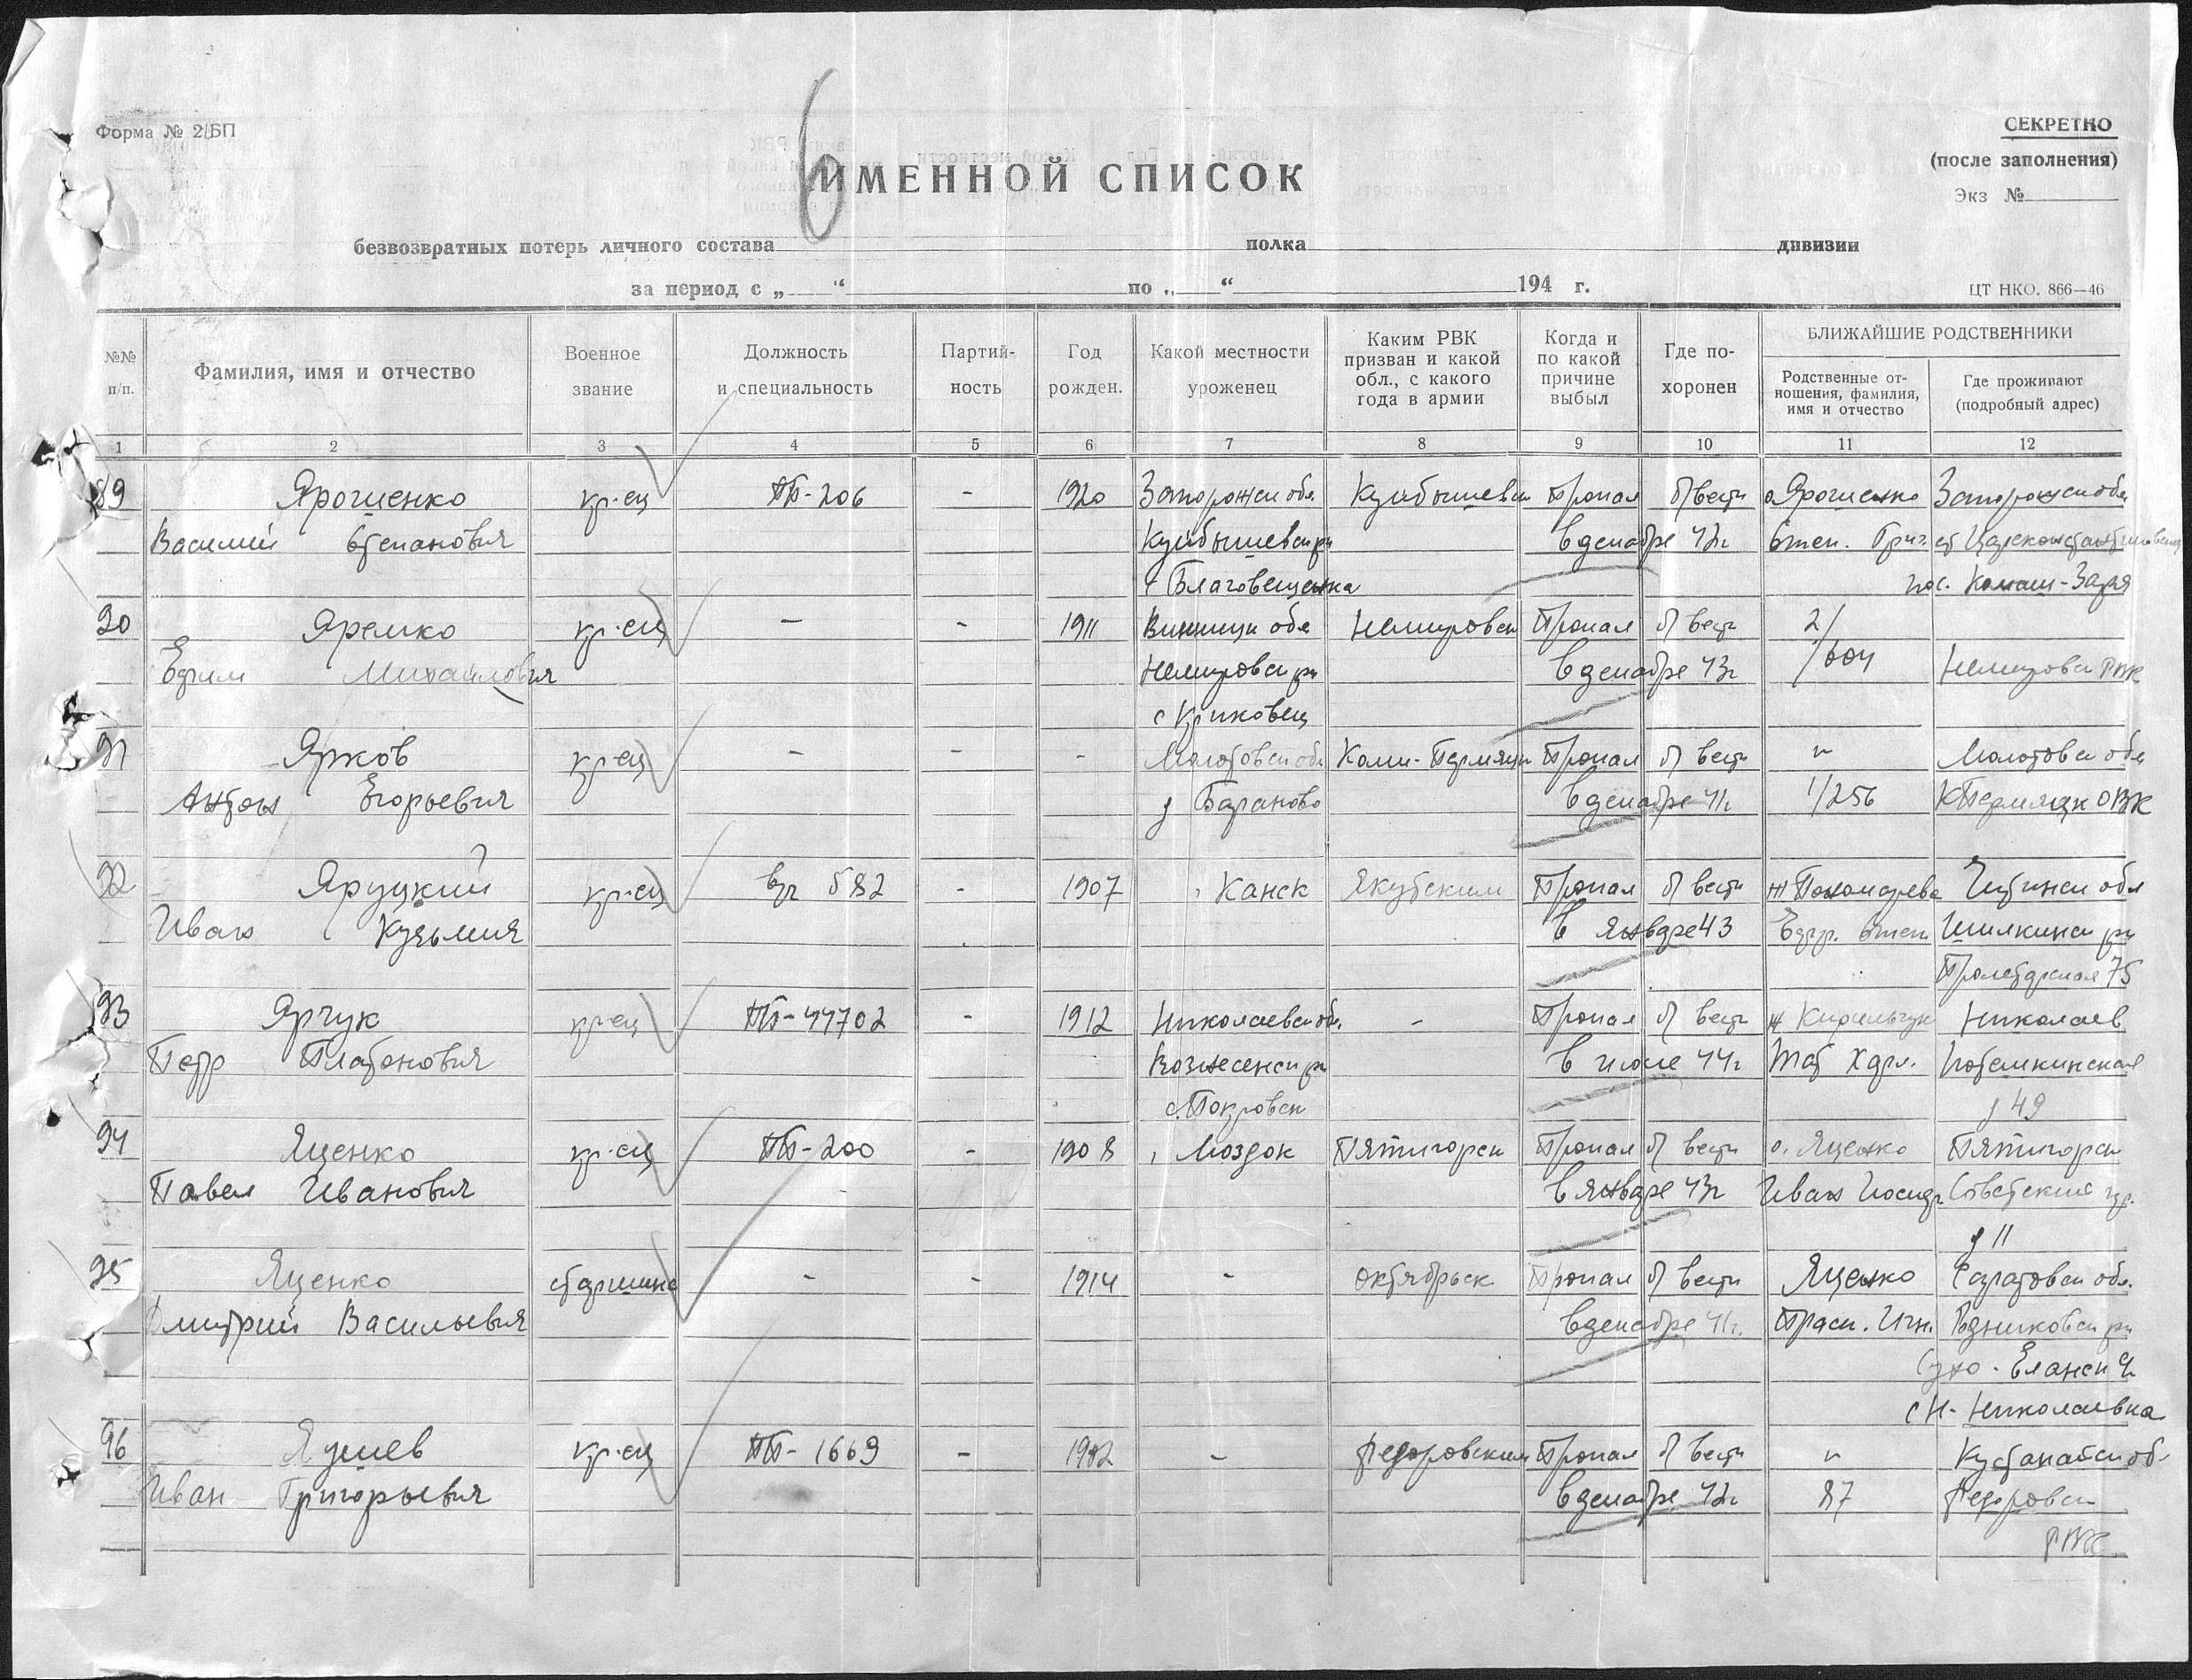 6
Форма № 2/БП
СЕКРЕТНО
(после заполнения)
Экз №
ИМЕННОЙ СПИСОК
безвозвратных потерь личного состава полка дивизии
за период с „ “ по „ “ 194 г.
ЦТ НКО. 866—46
№№ п/п.
Фамилия, имя и отчество
Военное звание
Должность и специальность
Партий-ность
Год рожден.
Какой местности уроженец
Каким РВК призван и какой обл., с какого года в армии
Когда и по какой причине выбыл
Где по-хоронен
БЛИЖАЙШИЕ РОДСТВЕННИКИ
Родственные от-ношения, фамилия, имя и отчество
Где проживают (подробный адрес)
1 2 3 4 5 6 7 8 9 10 11 12
89 Ярошенко кр-ец ПП-206 - 1920 Запорожск обл Куйбышевск Пропал б/вести о Ярошенко Запорожск обл
Василий Степанович Куйбышевск рн в декабре 42г Степ. Григ. ст Царeконстантиновская
с Благовещенка пос. Комыш-Заря
90 Яремко кр-ец - - 1911 Винницк обл Немировск Пропал б/вести 2/
Ефим Михайлович Немировск рн в декабре 43г Немировск РВК
с Криковец
91 Ярков кр-ец - - - Молотовск обл Коми-Пермяцк Пропал б/вести " Молотовск обл
Антон Егорьевич д Бараново в декабре 41г 1/256 КПермяцк ОВК
92 Яруцкий кр-ец вч 582 - 1907 г Канск Якутским Пропал б/вести ж Пономарева Читинск обл
Иван Кузьмич в январе 43 Евдр. Степ Шилкинск рн
Пролетарская 75
93 Ярчук кр-ец ПП-44702 - 1912 Николаевск обл. - Пропал б/вести ж Кирильчук Николаев
Петр Платонович Вознесенск рн в июле 44г Тат Хар. Потемкинская
с. Покровск д 49
94 Яценко кр-ец ПП-200 - 1908 г Моздок Пятигорск Пропал б/вести о. Яценко Пятигорск
Павел Иванович в январе 43г Иван Иосиф Советский пр.
д 11
95 Яценко старшина - - 1914 - Октябрьск Пропал б/вести Яценко Саратовск обл.
Дмитрий Васильевич в декабре 41г. Прас. Игн. Родниковск рн
Сухо-Еланск
с Н-Николаевка
96 Яушев кр-ец ПП-1669 - 1902 - Федоровским Пропал б/вести " Кустанайск об.
Иван Григорьевич в декабре 42г 87 Федоровск
РВК